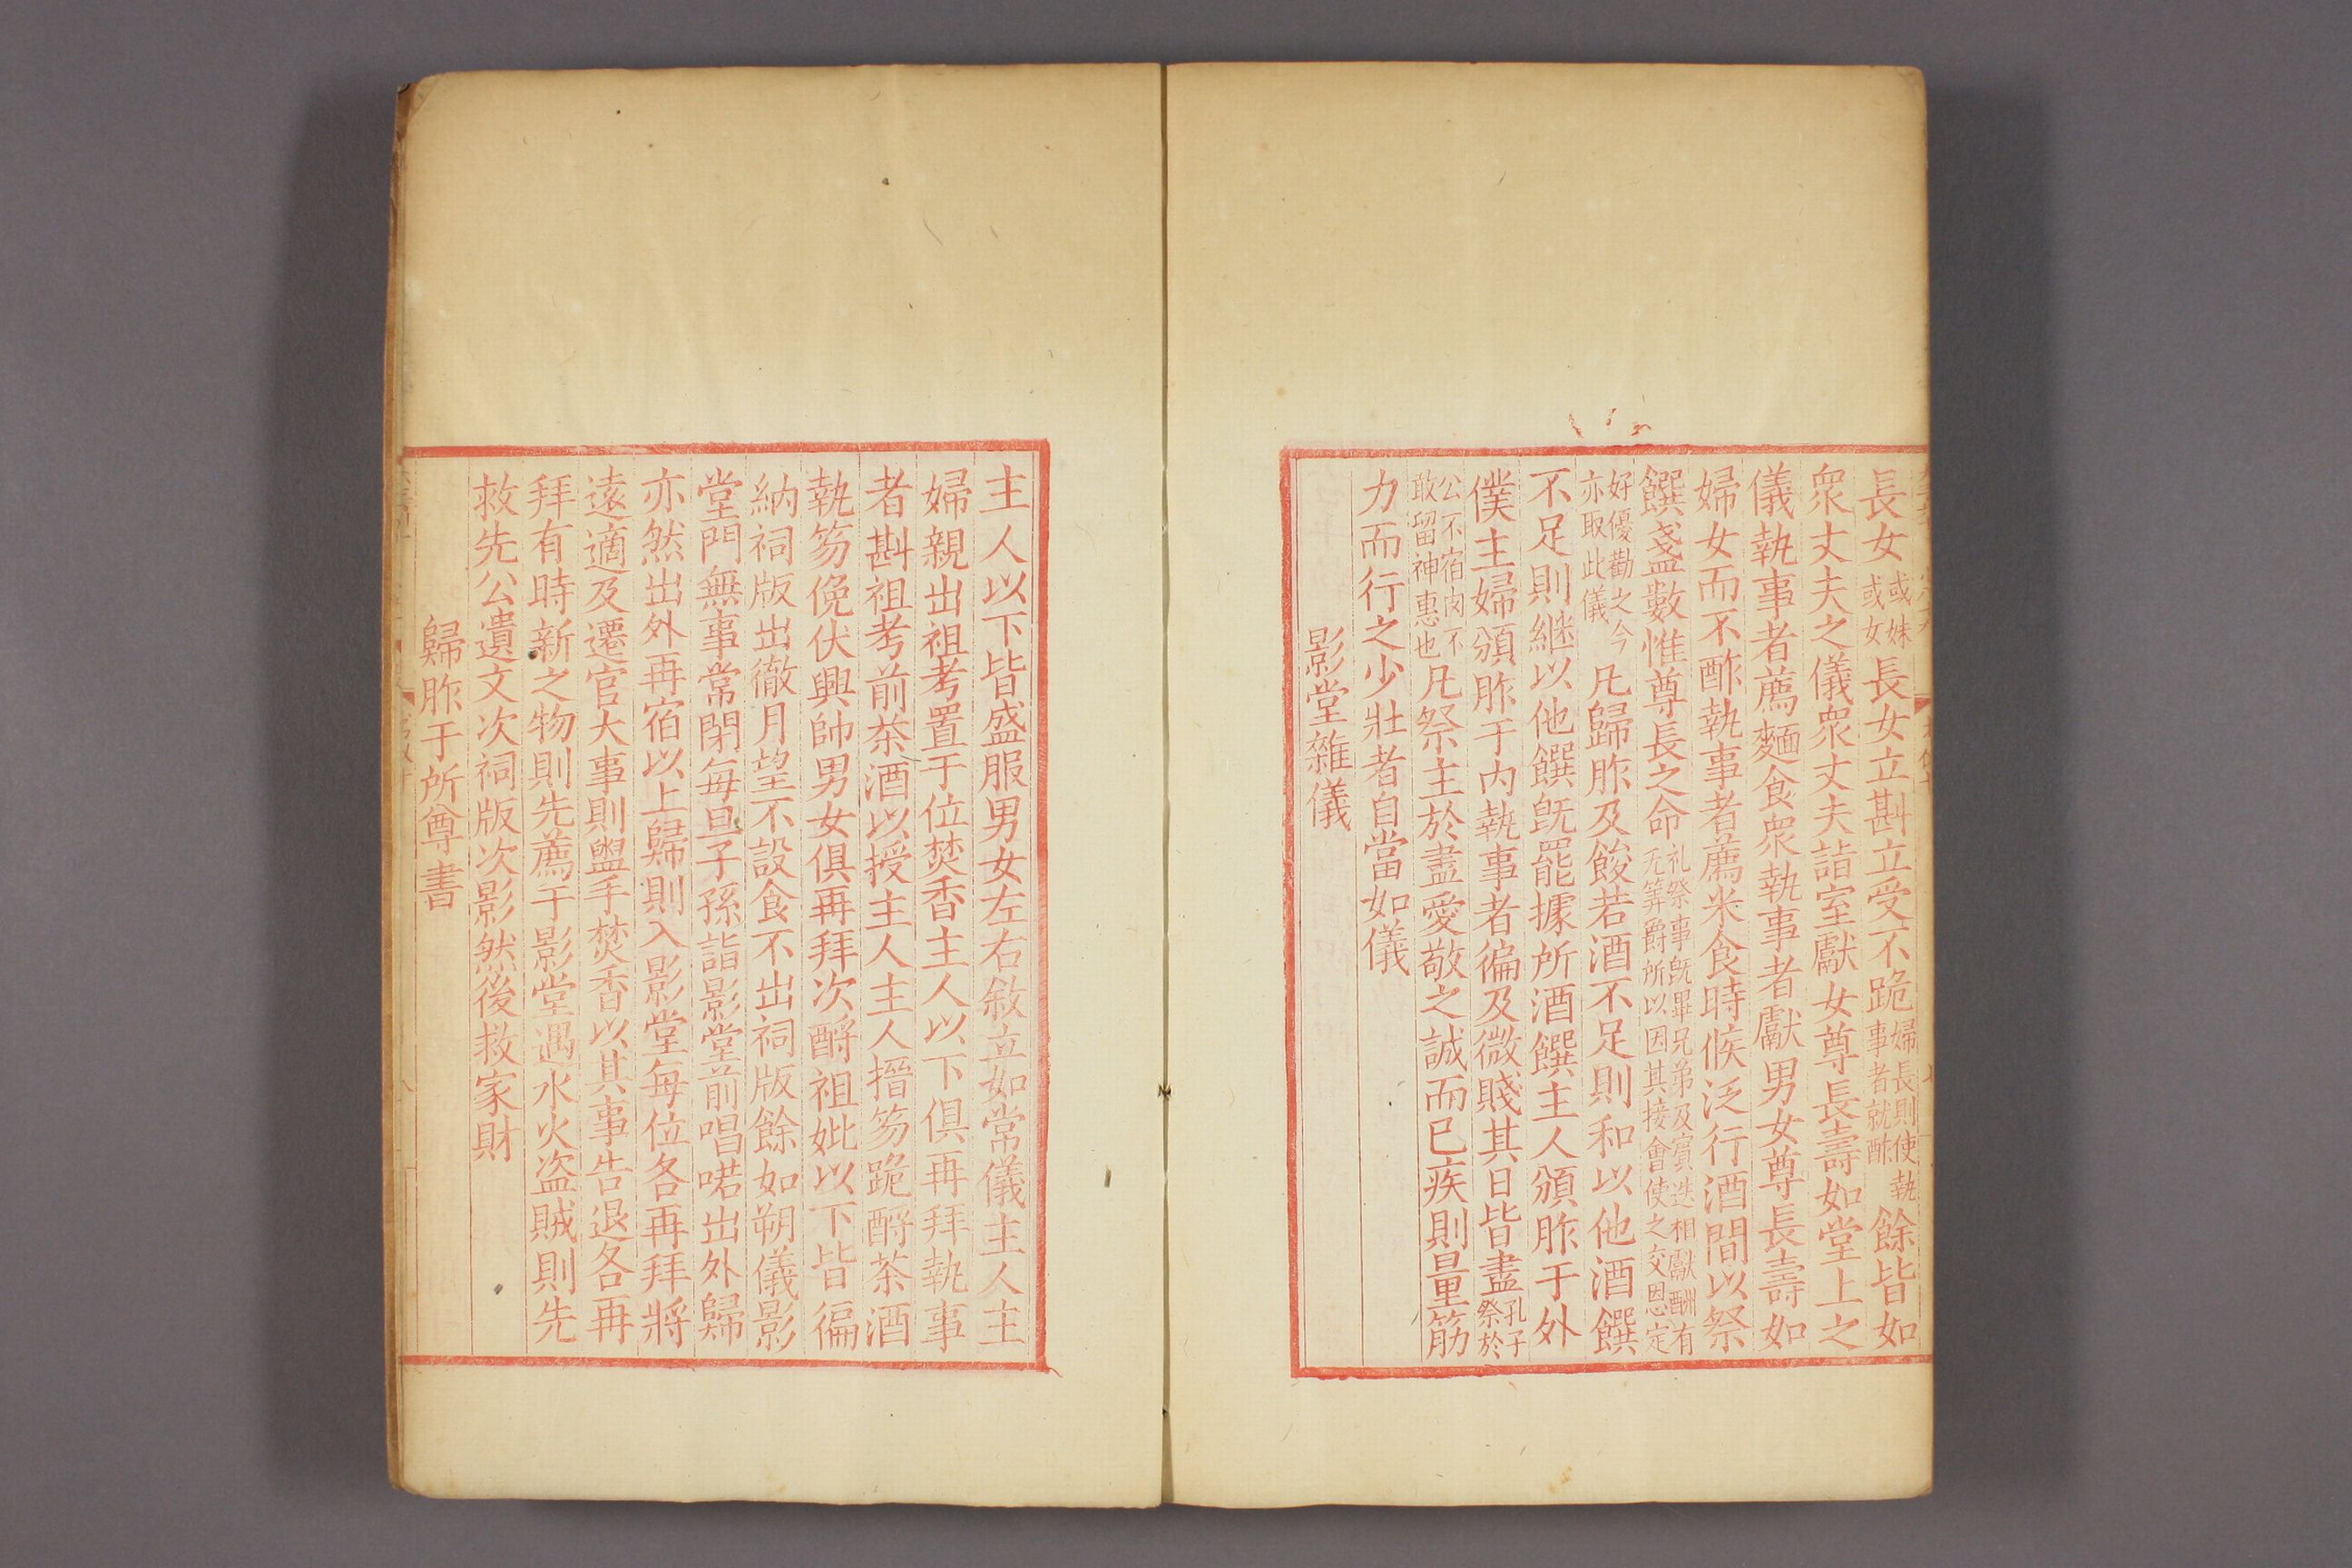 長女或妹或女長女立斟立受不跪婦長則使執事者就酢餘皆如
衆丈夫之儀衆丈夫詣室獻女尊長壽如堂上之
儀執事者薦麵食衆執事者獻男女尊長壽如
婦女而不酢執事者薦米食時候泛行酒間以祭
饌盞數惟尊長之命礼祭事旣畢兄弟及賓迭相獻酬有无筭爵所以因其接會使之交恩定
好優勸之今亦取此儀凡歸胙及餕若酒不足則和以他酒饌
不足則継以他饌旣罷據所酒饌主人頒胙于外
僕主婦頒胙于内執事者徧及微賤其日皆盡孔子祭於
公不宿肉不敢留神惠也凡祭主於盡愛敬之誠而已疾則量筋
力而行之少壯者自當如儀
影堂雜儀
主人以下皆盛服男女左右敘立如常儀主人主
婦親出祖考置于位焚香主人以下俱再拜執事
者斟祖考前茶酒以授主人主人搢笏跪酹茶酒
執笏俛伏興帥男女俱再拜次酹祖妣以下皆徧
納祠版出徹月望不設食不出祠版餘如朔儀影
堂門無事常閉每旦子孫詣影堂前唱喏出外歸
亦然出外再宿以上歸則入影堂每位各再拜將
遠適及遷官大事則盥手焚香以其事告退各再
拜有時新之物則先薦于影堂遇水火盗賊則先
救先公遺文次祠版次影然後救家財
歸胙于所尊書